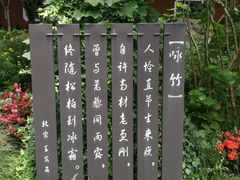 【咏竹】
人怜直节生来瘦，
自许高材老更刚。
曾与蒿藜同雨露，
终随松柏到冰霜。
北宋 王安石